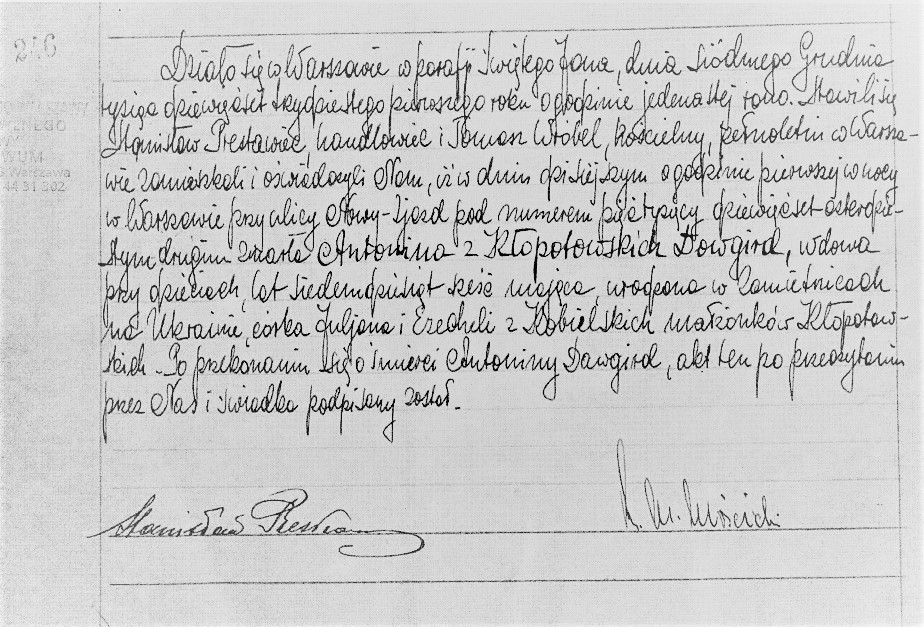 246
Działo się w Warszawie w parafji świętego Jana, dnia siódmego Grudnia
tysiąc dziewięćset trzydziestego pierwszego roku o godzinie jedenastej rano. Stawili się
Stanisław handlowiec i Tomasz Wróbel, kościelny, pełnoletni w Warsza-
wie zamieszkali i oświadczyli Nam, iż w dniu dzisiejszym o godzinie pierwszej w nocy
w Warszawie przy ulicy Nowy-Zjazd pod numerem pięć tysięcy dziewięćset czterdzie-
stym drugim zmarła Antonina z Kłopotowskich Dowgird, wdowa
przy dzieciach, lat siedemdziesiąt sześć mająca, urodzona w
na Ukrainie, córka Juljana i Ezecheli z Kobielskich małżonków Kłopotow-
skich. Po przekonaniu się o śmierci Antoniny Dowgird, akt ten po przeczytaniu
przez Nas i świadka podpisany został.
Stanisław
WUM
Warszawa
44 31 302